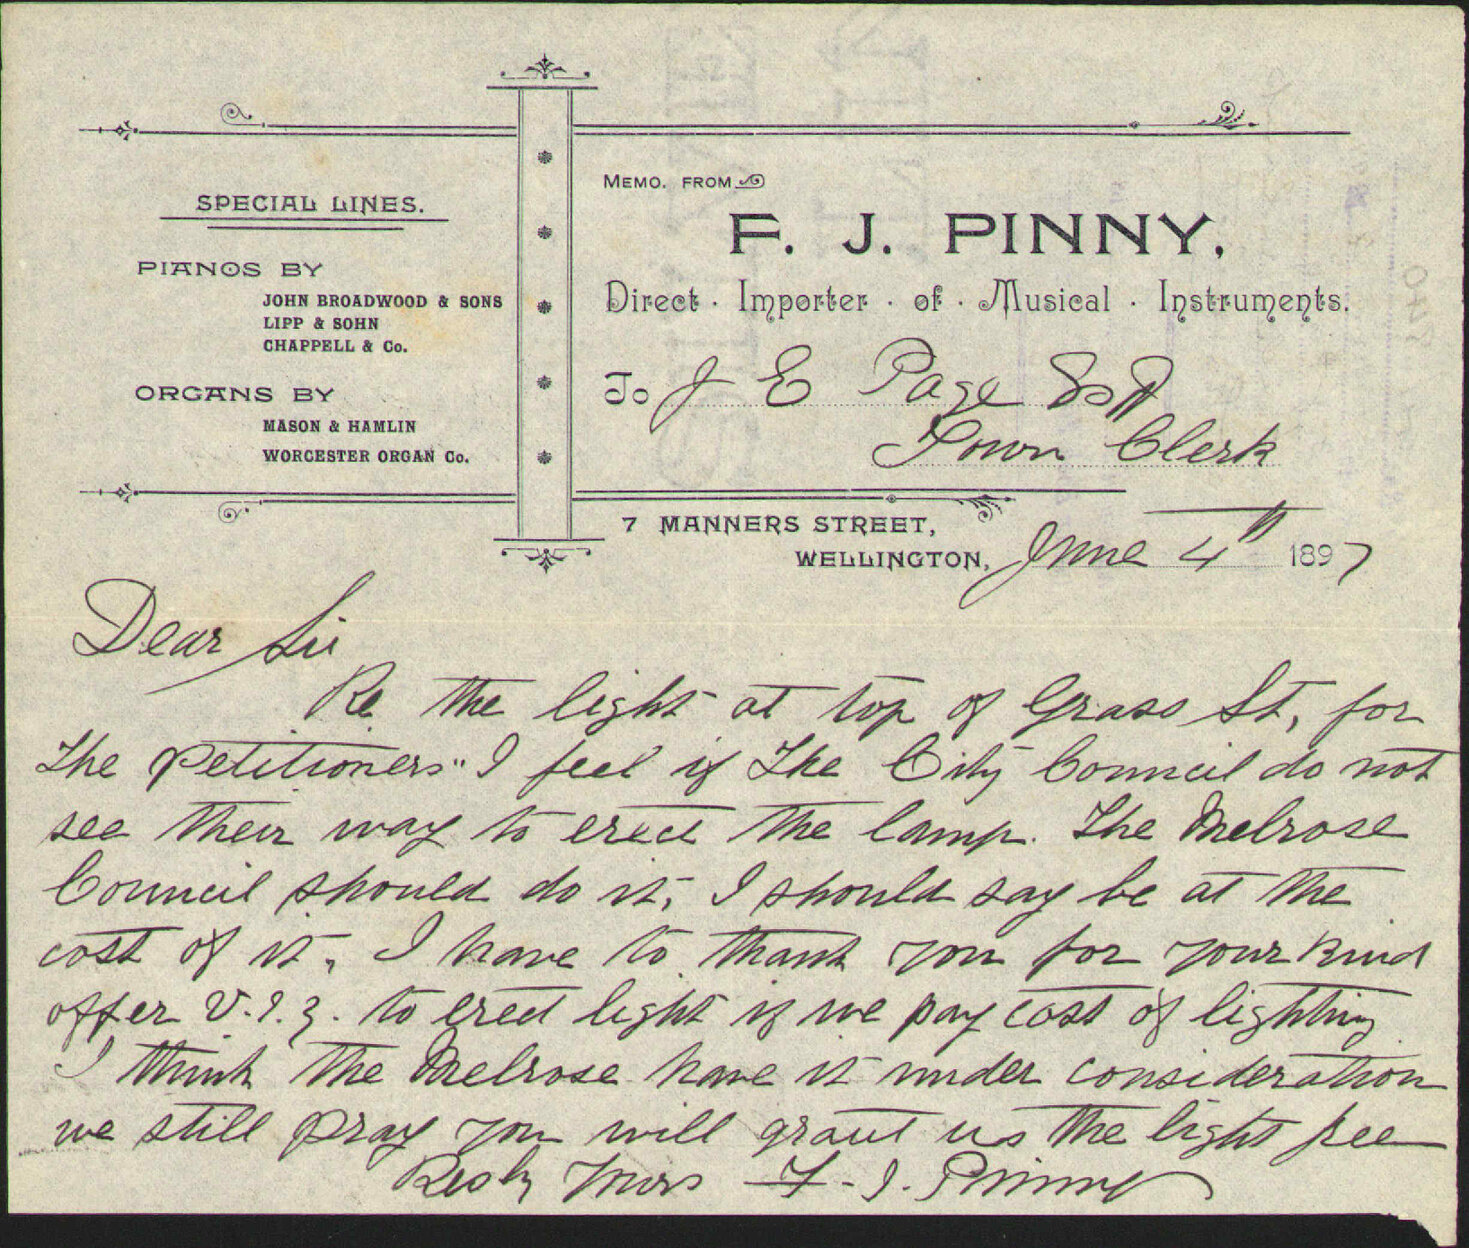 SPECIAL LINES.
PIANOS BY
JOHN BROADWOOD & SONS
LIPP & SOHN
CHAPPELL & Co.
ORGANS BY
MASON & HAMLIN
WORCESTER ORGAN Co.
MEMO. FROM
F. J. PINNY,
Direct · Importer · of · Musical · Instruments.
To J E Page Esq
Town Clerk
7 MANNERS STREET,
WELLINGTON, June 4th 1897
Dear Sir
Re the light at top of Grass St, for
the petitioners" I feel if The City Council do not
see their way to erect the lamp. The Melrose
Council should do it, I should say be at the
cost of it, I have to thank you for your kind
offer V.I.Z. to erect light if we pay cost of lighting
I think the Melrose have it under consideration
we still pray you will grant us the light free
Resply Yours F. J. Pinny